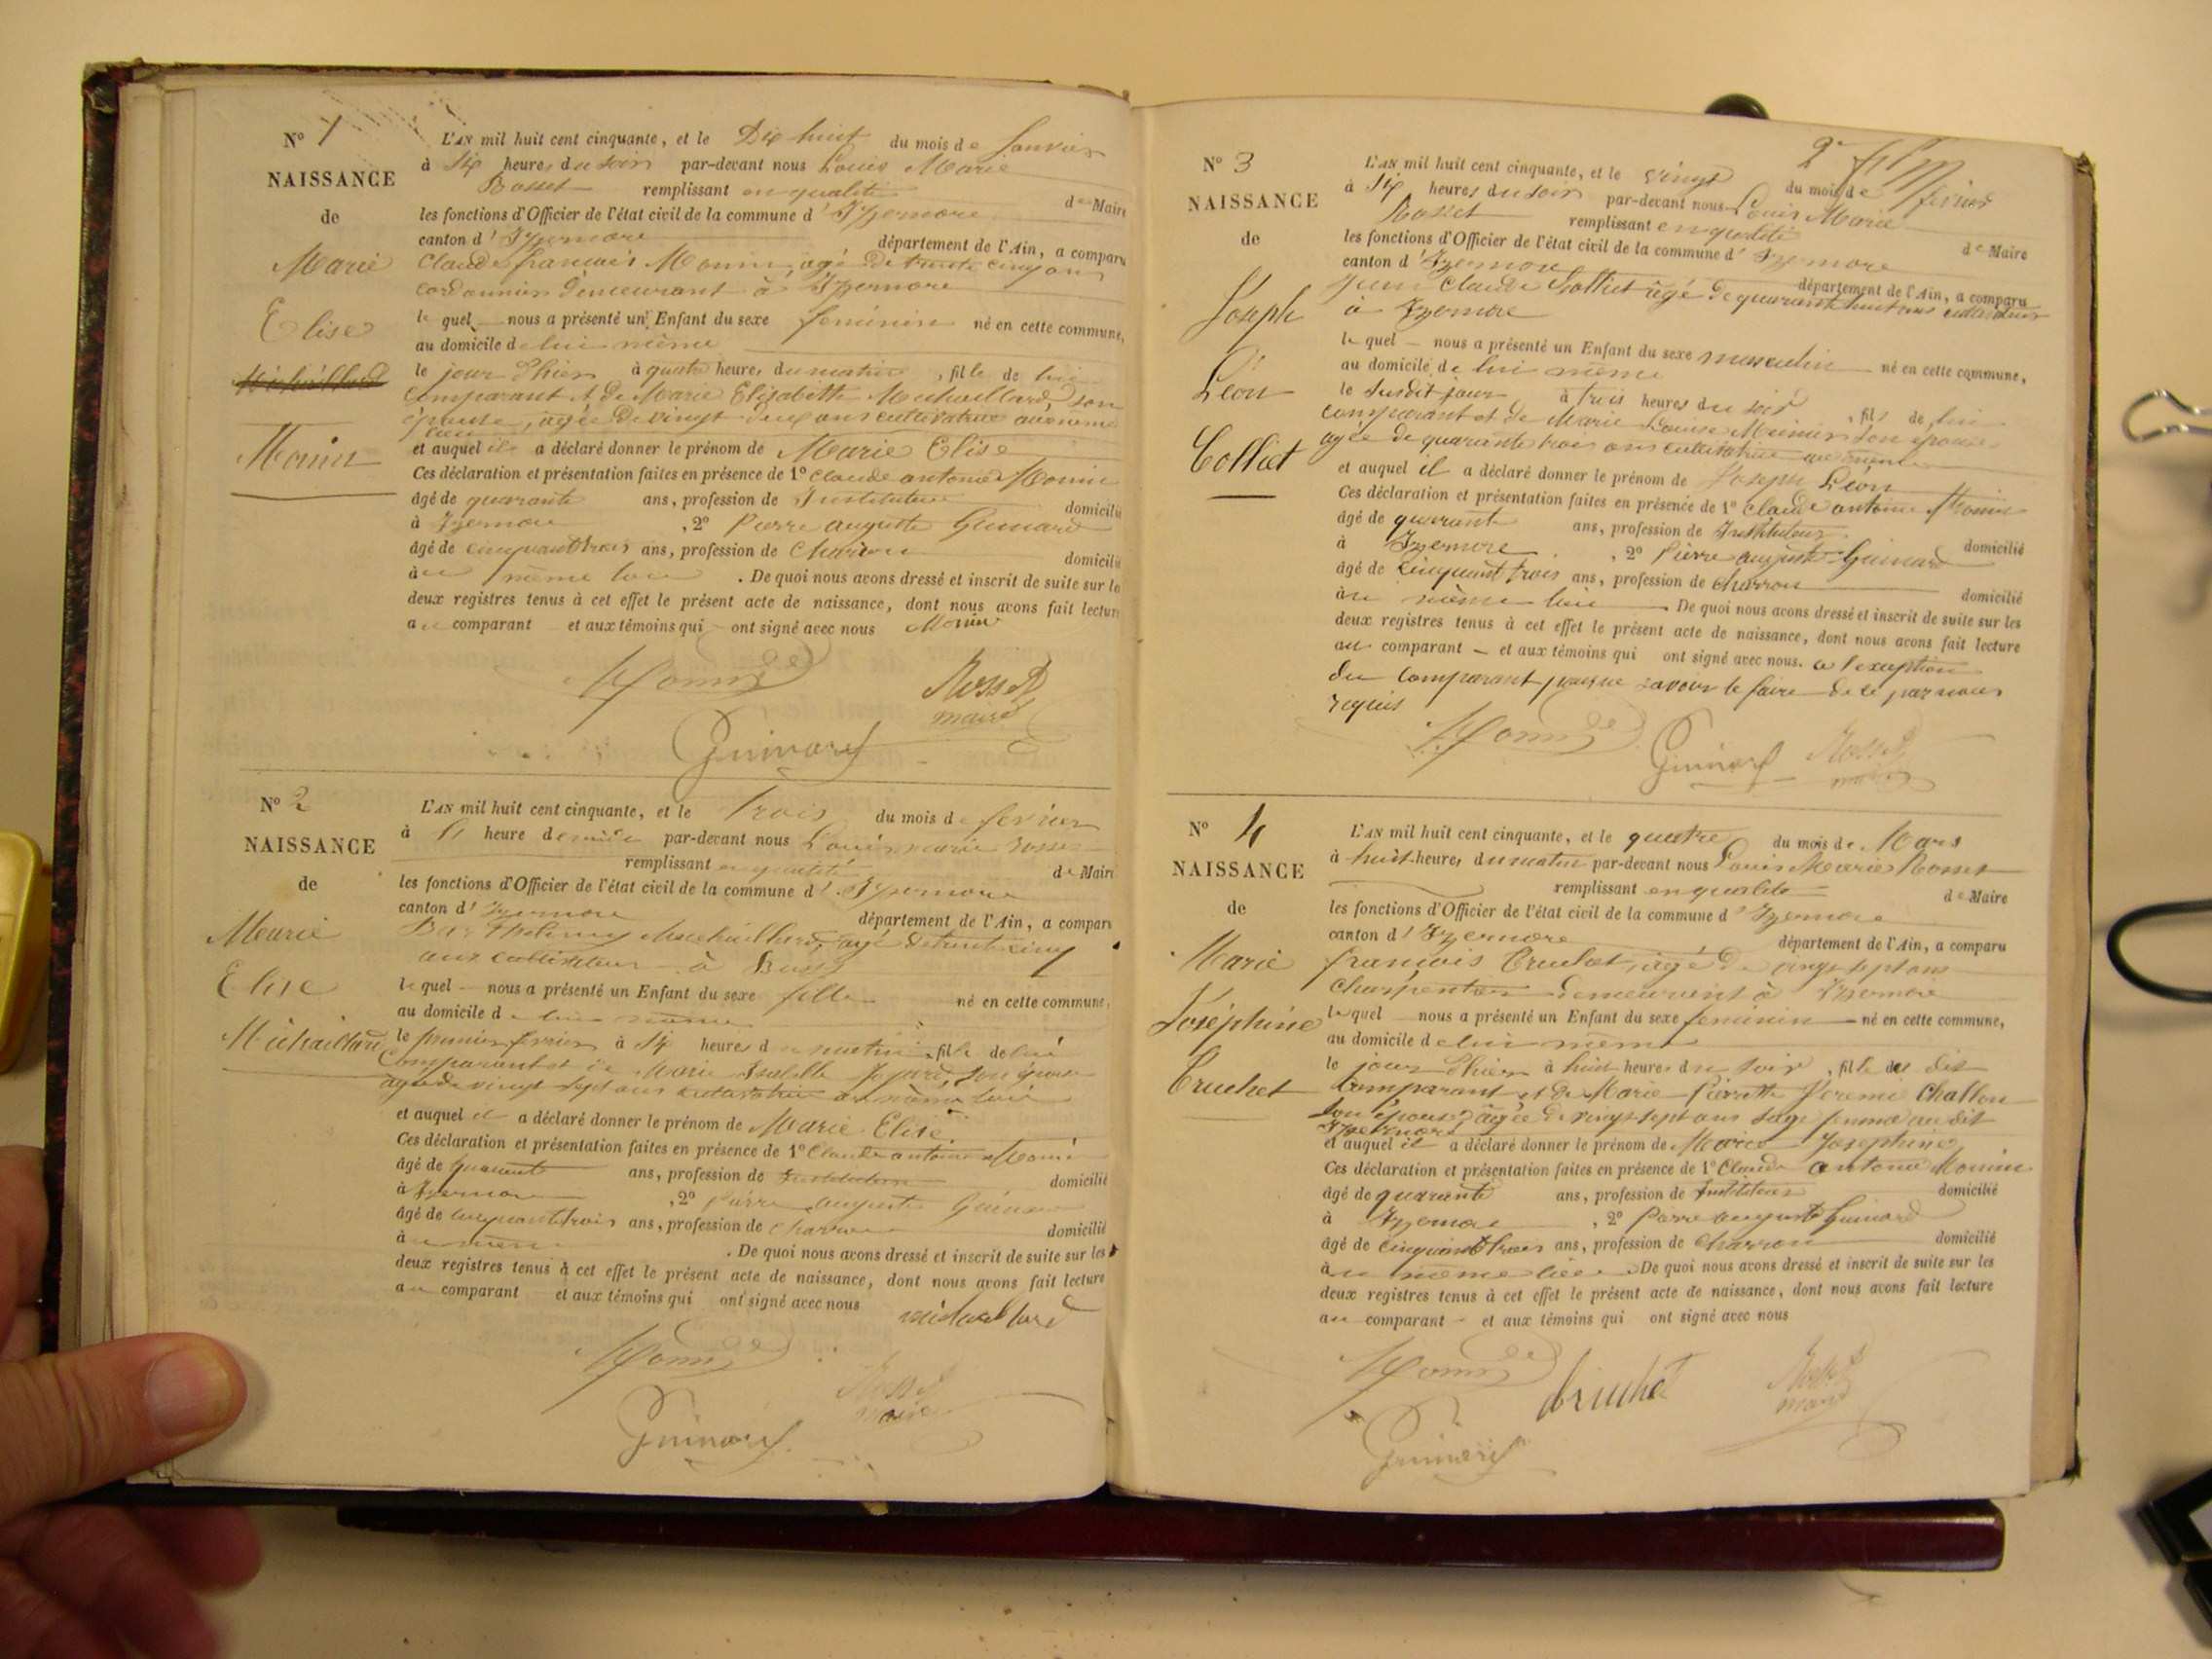 N° 1
NAISSANCE
de
Marie
Elise
Monin
L'AN mil huit cent cinquante, et le Dix huit du mois de Janvier
à Six heures du soir par-devant nous Louis Marie
Rosset remplissant en qualité de Maire
les fonctions d'Officier de l'état civil de la commune d'Izernore
canton d'Izernore département de l'Ain, a comparu
Claude françois Monin, agé de trente cinq ans
cordonnier demeurant à Izernore
lequel nous a présenté un Enfant du sexe feminin né en cette commune,
au domicile de lui même
le jour d'hier à quatre heures du matin, fille de lui
comparant et de Marie Elizabeth Michaillard, son
épouse, agée de vingt deux ans cultivatrice au même
lieu
et auquel il a déclaré donner le prénom de Marie Elise
Ces déclaration et présentation faites en présence de 1° Claude antoine Monin
âgé de quarante ans, profession de Instituteur domicilié
à Izernore, 2° Pierre auguste Guinard
âgé de cinquante trois ans, profession de Charron domicilié
au même lieu. De quoi nous avons dressé et inscrit de suite sur les
deux registres tenus à cet effet le présent acte de naissance, dont nous avons fait lecture
au comparant et aux témoins qui ont signé avec nous Monin
Monin
Rosset
maire
Guinard
N° 2
NAISSANCE
de
Marie
Elise
Michaillard
L'AN mil huit cent cinquante, et le Trois du mois de fevrier
à heure de midi par-devant nous Louis marie Rosset
remplissant en qualité de Maire
les fonctions d'Officier de l'état civil de la commune d'Izernore
canton d'Izernore département de l'Ain, a comparu
Barthelemy Michaillard, agé de trente cinq
ans cultivateur à Bussy
lequel nous a présenté un Enfant du sexe fille né en cette commune,
au domicile de lui même
le premier fevrier à Six heures du matin, fille de lui
comparant et de Marie son épouse
agée de vingt sept ans cultivatrice au même lieu
et auquel il a déclaré donner le prénom de Marie Elise
Ces déclaration et présentation faites en présence de 1° Claude antoine Monin
âgé de quarante ans, profession de Instituteur domicilié
à Izernore, 2° Pierre auguste Guinard
âgé de cinquante trois ans, profession de Charron domicilié
au même. De quoi nous avons dressé et inscrit de suite sur les
deux registres tenus à cet effet le présent acte de naissance, dont nous avons fait lecture
au comparant et aux témoins qui ont signé avec nous michaillard
Monin
Rosset
maire
Guinard
2e film
N° 3
NAISSANCE
de
Joseph
Léon
Colliet
L'AN mil huit cent cinquante, et le vingt du mois de fevrier
à Six heures du soir par-devant nous Louis Marie
Rosset remplissant en qualité de Maire
les fonctions d'Officier de l'état civil de la commune d'Izernore
canton d'Izernore département de l'Ain, a comparu
Jean Claude Colliet agé de quarante huit ans cultivateur
à Izernore
lequel nous a présenté un Enfant du sexe masculin né en cette commune,
au domicile de lui même
le susdit jour à trois heures du soir, fils de lui
comparant et de Marie Louise Meunier son épouse
agée de quarante trois ans cultivatrice au même
et auquel il a déclaré donner le prénom de Joseph Léon
Ces déclaration et présentation faites en présence de 1° Claude antoine Monin
âgé de quarante ans, profession de Instituteur domicilié
à Izernore, 2° Pierre auguste Guinard
âgé de cinquante trois ans, profession de charron domicilié
au même lieu. De quoi nous avons dressé et inscrit de suite sur les
deux registres tenus à cet effet le présent acte de naissance, dont nous avons fait lecture
au comparant et aux témoins qui ont signé avec nous. a l'exception
du comparant pour ne savoir le faire de ce par nous
requis
Monin
Guinard
Rosset
maire
N° 4
NAISSANCE
de
Marie
Joséphine
Truchet
L'AN mil huit cent cinquante, et le quatre du mois de Mars
à huit heures du matin par-devant nous Louis Marie Rosset
remplissant en qualité de Maire
les fonctions d'Officier de l'état civil de la commune d'Izernore
canton d'Izernore département de l'Ain, a comparu
françois Truchet, agé de vingt sept ans
charpentier demeurant à Izernore
lequel nous a présenté un Enfant du sexe feminin né en cette commune,
au domicile de lui même
le jour d'hier à huit heures du soir, fille du dit
comparant et de Marie Pierrette Challon
son épouse, agée de vingt sept ans sage femme au dit
Izernore
et auquel il a déclaré donner le prénom de Marie Joséphine
Ces déclaration et présentation faites en présence de 1° Claude antoine Monin
âgé de quarante ans, profession de Instituteur domicilié
à Izernore, 2° Pierre auguste Guinard
âgé de cinquante trois ans, profession de Charron domicilié
au même lieu. De quoi nous avons dressé et inscrit de suite sur les
deux registres tenus à cet effet le présent acte de naissance, dont nous avons fait lecture
au comparant et aux témoins qui ont signé avec nous
Monin
truchet
Rosset
maire
Guinard